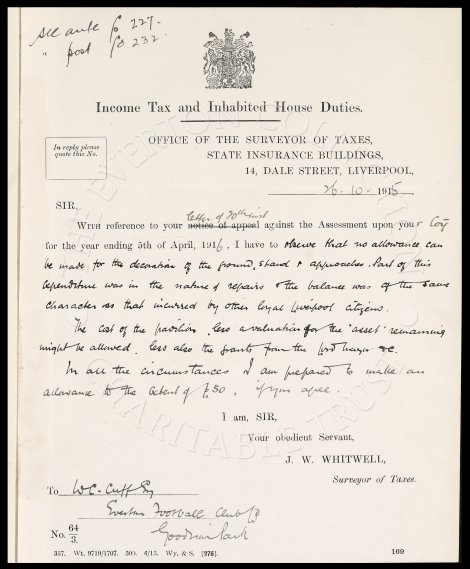 See ante fo 227.
" post fo 232.
Income Tax and Inhabited House Duties.
In reply please
quote this No.
OFFICE OF THE SURVEYOR OF TAXES,
STATE INSURANCE BUILDINGS,
14, DALE STREET, LIVERPOOL,
26-10-1915
SIR,
letter of 20th inst
WITH reference to your notice of appeal against the Assessment upon your Coy
for the year ending 5th of April, 1916, I have to observe that no allowance can
be made for the decoration of the ground, stand & approaches. Part of this
expenditure was in the nature of repairs & the balance was of the same
character as that incurred by other loyal Liverpool citizens.
The cost of the pavilion, less a valuation for the "asset" remaining
might be allowed, less also the grants from the Lord Mayor &c.
In all the circumstances I am prepared to make an
allowance to the extent of £50, if you agree.
I am, SIR,
Your obedient Servant,
J. W. WHITWELL,
Surveyor of Taxes.
To W.C. Cuff Esq
Everton Football Club Co
Goodison Park
No. 64/3.
357. Wt. 9719/1707. 500. 6/15. Wy. & S. [276].
169
EVERTON COLLECTION
CHARITABLE TRUST